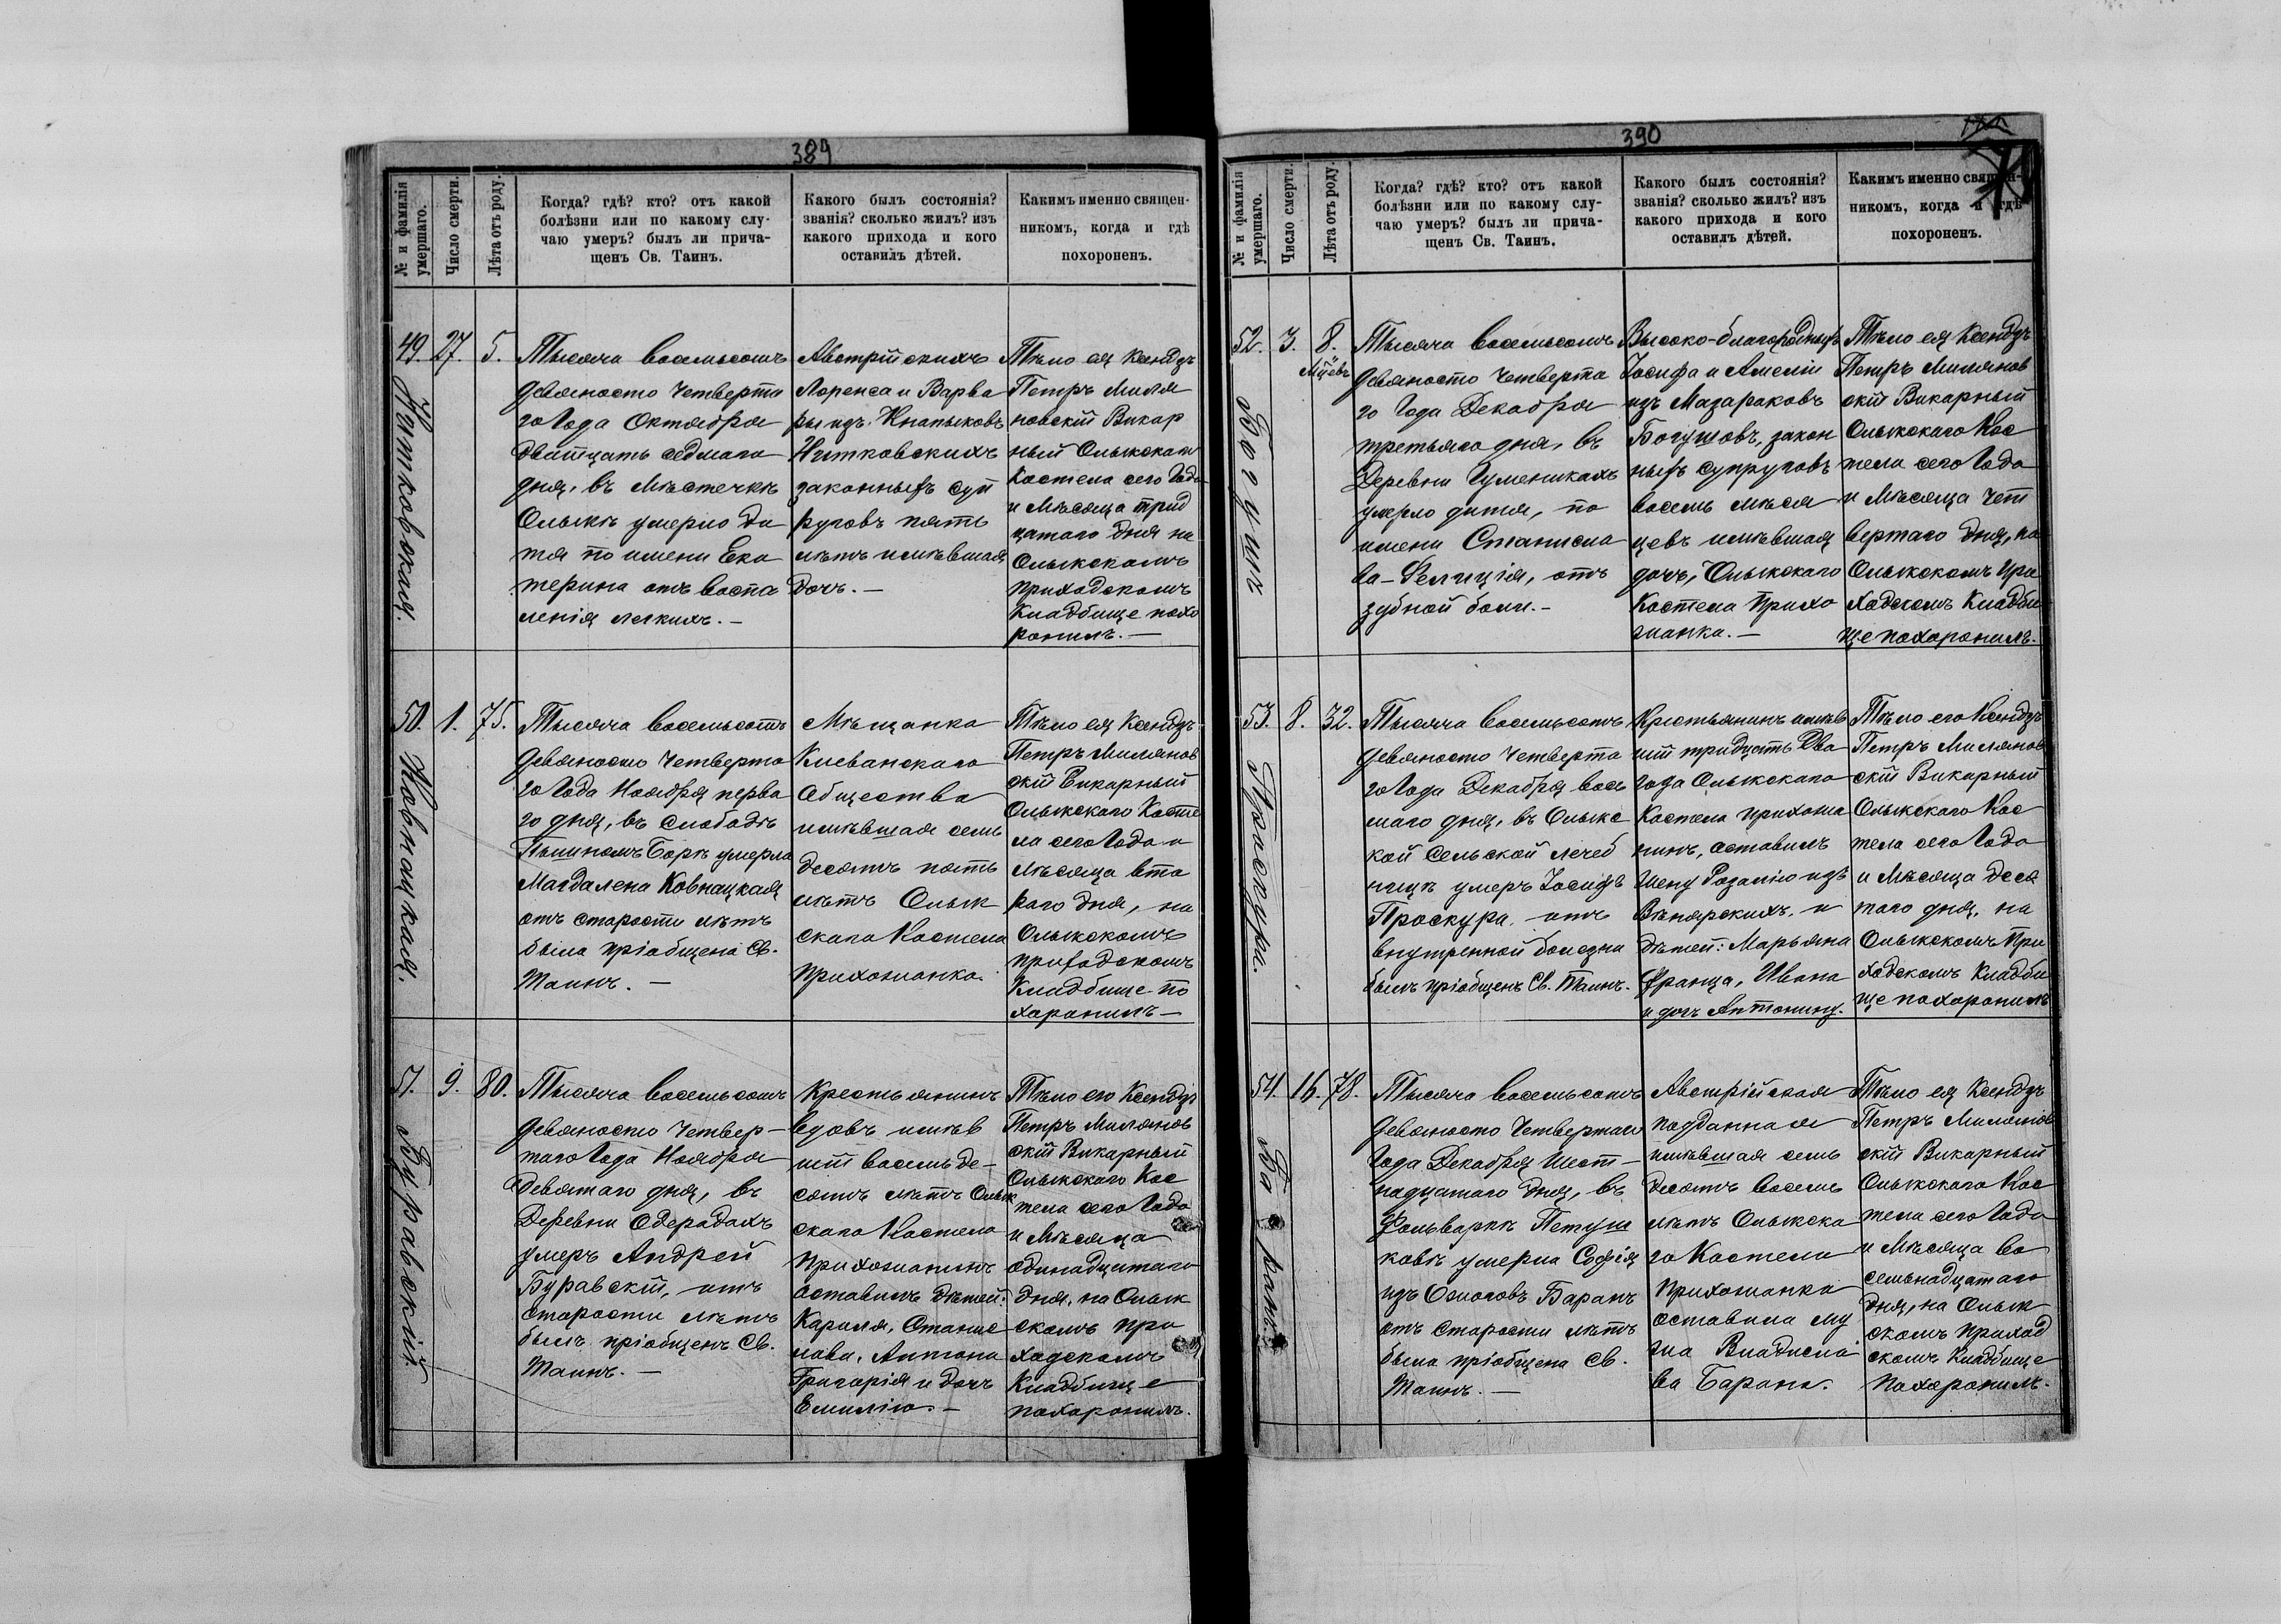 389
№ и фамилія
умершаго.
Число смерти.
Лѣта отъ роду.
Когда? гдѣ? кто? отъ какой
болѣзни или по какому слу-
чаю умеръ? былъ ли прича-
щенъ Св. Таинъ.
Какого былъ состоянія?
званія? сколько жилъ? изъ
какого прихода и кого
оставилъ дѣтей.
Какимъ именно священ-
никомъ, когда и гдѣ
похороненъ.
49.
Нитковская.
27.
5.
Тысяча восемьсотъ
девяносто четверта
го Года Октября
дватцать седмаго
дня, въ Мѣстечкѣ
Олыкѣ умерло ди
тя по имени Ека
терина отъ воспа
ленія легкихъ. —
Австрійскихъ
Лоренса и Варва
ры изъ Кнапыковъ
Нитковскихъ
законныхъ суп
руговъ пять
лѣтъ имѣвшая
дочь. —
Тѣло ея Ксендзъ
Петръ Миля
новскій Викар
ный Олыкскаго
Костела сего Года
и Мѣсяца трид
цатаго дня на
Олыкскомъ
приходскомъ
Кладбище похо
ронилъ. —
50.
Ковнацкая.
1.
75.
Тысяча восемьсотъ
девяносто четверта
го Года Ноября перва
го дня, въ слободѣ
Борѣ умерла
Магдалена Ковнацкая
отъ старости лѣтъ
была пріобщена Св.
Таинъ. —
Мѣщанка
Клеванскаго
Общества
имѣвшая семь
десять пять
лѣтъ Олык
скаго Костела
прихожанка.
Тѣло ея Ксендзъ
Петръ Милянов
скій Викарный
Олыкского Косте
ла сего Года и
Мѣсяца вто
раго дня, на
Олыкскомъ
приходскомъ
Кладбище по
харонилъ —
51.
Буравскій.
9.
80.
Тысяча восемьсотъ
девяносто четвер-
таго Года Ноября
девятаго дня, въ
Деревни Одерадахъ
умеръ Андрей
Буравскій, отъ
старости лѣтъ
былъ пріобщенъ Св.
Таинъ. —
Крестьянинъ
вдовъ имѣв
шій восемьде-
сятъ лѣтъ Олык
скаго Костела
прихожанинъ
оставилъ дѣтей:
Кароля, Станис
лава, Антона
Григорія и дочь
Емилію. —
Тѣло его Ксендзъ
Петръ Милянов
скій Викарный
Олыкскаго Кос
тела сего Года
и Мѣсяца
одинадцатаго
дня, на Олык
скомъ при
ходскомъ
Кладбище
похоронилъ.
390
№ и фамилія
умершаго.
Число смерти.
Лѣта отъ роду.
Когда? гдѣ? кто? отъ какой
болѣзни или по какому слу-
чаю умеръ? былъ ли прича-
щенъ Св. Таинъ.
Какого былъ состоянія?
званія? сколько жилъ? изъ
какого прихода и кого
оставилъ дѣтей.
Какимъ именно священ-
никомъ, когда и гдѣ
похороненъ.
52.
Богушъ
3.
8.
Тысяча восемьсотъ
девяносто четверта
го Года Декабря
третьяго дня, въ
Деревни Гуменикахъ
умерло дитя, по
имени Станисла
ва-Фелиція, отъ
зубной боли. —
Высоко-благородныхъ
Іосифа и Амеліи
изъ Мазараковъ
Богушовъ, закон
ныхъ супруговъ
восемь мѣся
цевъ имѣвшая
дочь, Олыкскаго
Костела прихо
жанка. —
Тѣло ея Ксендзъ
Петръ Милянов
скій Викарный
Олыкскаго Кос
тела сего Года
и Мѣсяца чет
вертаго дня, на
Олыкскомъ при
ходскомъ Кладби
ще похоронилъ.
53.
Проскура.
8.
32.
Тысяча восемьсотъ
девяносто четверта
го Года Декабря вось
маго дня, въ Олыкс
кой сельской лечеб
ницѣ умеръ Іосифъ
Проскура отъ
внутренной болезни
былъ пріобщенъ Св. Таинъ.
Крестьянинъ имѣв
шій тридцать два
года Олыкскаго
Костела прихожа
нинъ, оставилъ
жену Розалію изъ
Венярскихъ, и
дѣтей: Марьяна
Франца, Ивана
и дочь Антонину.
Тѣло его Ксендзъ
Петръ Милянов
скій Викарный
Олыкскаго Кос
тела сего Года
и Мѣсяца деся
таго дня, на
Олыкскомъ при
ходскомъ Кладби
ще похоронилъ
54.
Баранъ
16.
78.
Тысяча восемьсотъ
девяносто четвертаго
Года Декабря шест-
надцатаго дня, въ
Фольваркѣ Петуш
ковѣ умерла Софія
изъ Ожоговъ Баранъ
отъ старости лѣтъ
была пріобщена Св.
Таинъ. —
Австрійская
подданная
имѣвшая семь
десятъ восемь
лѣтъ Олыкска
го Костела
прихожанка
оставила му
жа Владисла
ва Барана.
Тѣло ея Ксендзъ
Петръ Милянов
скій Викарный
Олыкскаго Кос
тела сего Года
и Мѣсяца во
семьнадцатаго
дня, на Олык
скомъ приход
скомъ Кладбище
похоронилъ.